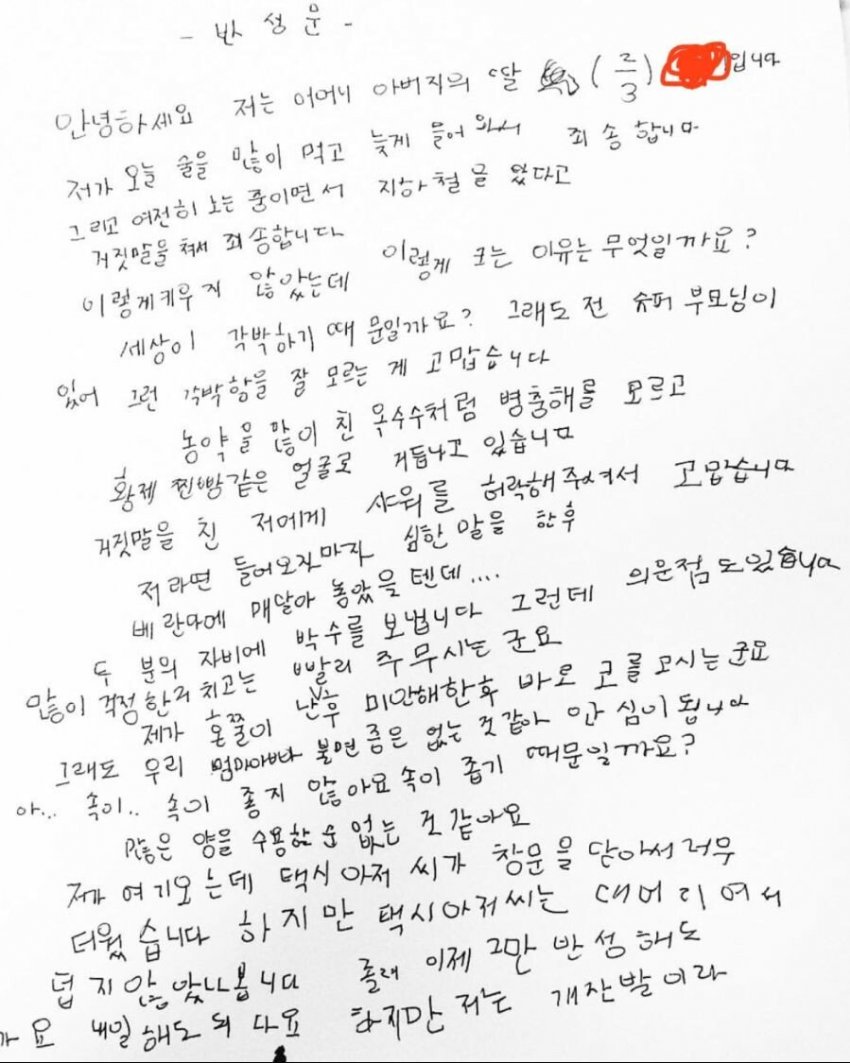 - 반성문 -
안녕하세요 저는 어머니 아버지의 딸 (2/3) 입니다
저가 오늘 술을 많이 먹고 늦게 들어와서 죄송합니다
그리고 여전히 노는 중이면서 지하철을 탔다고
거짓말을 쳐서 죄송합니다
이렇게 키우지 않았는데 이렇게 크는 이유는 무엇일까요?
세상이 각박하기 때문일까요? 그래도 전 슈퍼 부모님이
있어 그런 각박함을 잘 모르는 게 고맙습니다
농약을 많이 친 옥수수처럼 병충해를 모르고
황제 찐빵같은 얼굴로 거듭나고 있습니다
거짓말을 친 저에게 샤워를 허락해주셔서 고맙습니다
저라면 들어오자마자 심한 말을 한 후
베란다에 매달아 놓았을 텐데....
두 분의 자비에 박수를 보냅니다 그런데 의문점도 있습니다
많이 걱정한거 치고는 빨리 주무시는 군요
제가 혼쭐이 난 후 미안해한 후 바로 코를 고시는군요
그래도 우리 엄마아빠 불면증은 없는 것 같아 안심이 됩니다
아... 속이.. 속이 좋지 않아요 속이 좁기 때문일까요?
많은 양을 수용할 순 없는 것 같아요
저가 여기 오는데 택시아저씨가 창문을 닫아서 너무
더웠습니다 하지만 택시아저씨는 대머리여서
덥지 않았나봅니다 졸래 이제 그만 반성해도
가요 내일 해도 되 다요 하지만 저는 개잔발이라